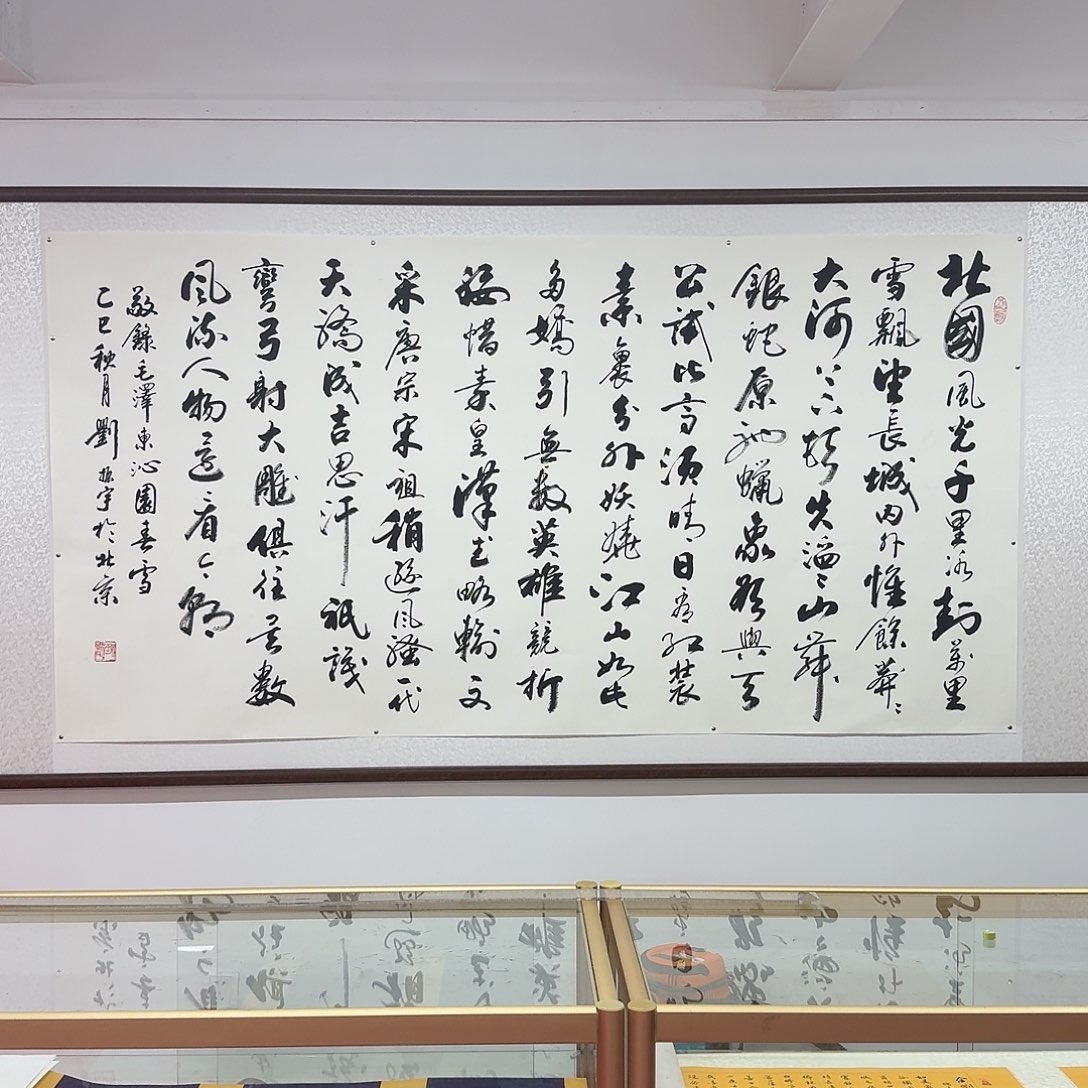 北國風光千里冰封萬里
雪飄望長城內外惟餘莽〻
大河上下頓失滔〻山舞
銀蛇原馳蠟象欲與天
公試比高須晴日看紅裝
素裹分外妖嬈江山如此
多嬌引無數英雄競折
腰惜秦皇漢武略輸文
采唐宗宋祖稍遜風騷一代
天驕成吉思汗祇識
彎弓射大雕俱往矣數
風流人物還看今朝
敬錄毛澤東沁園春雪
乙巳秋月劉振宇於北京